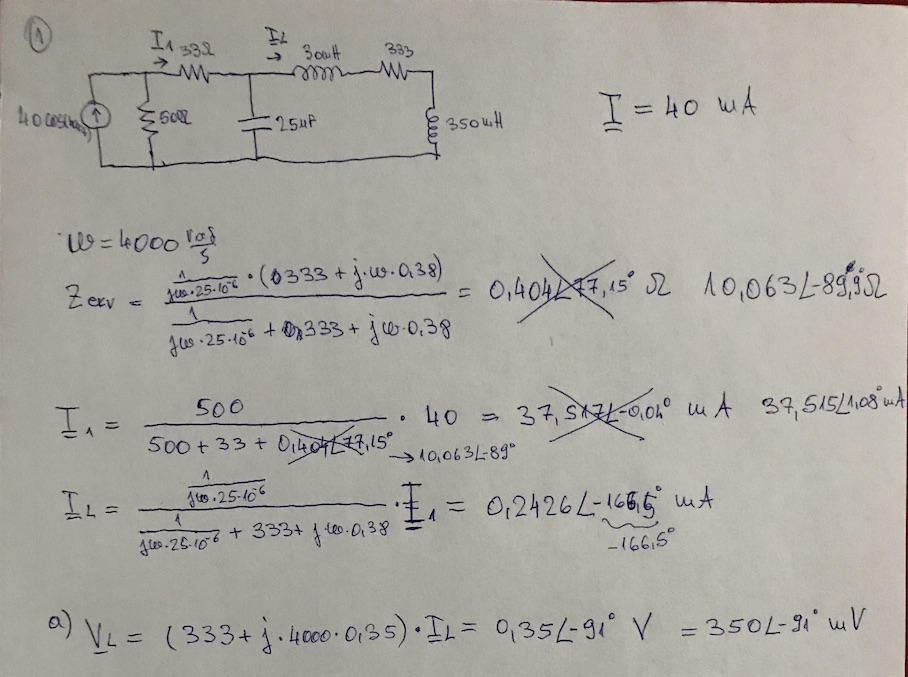 1
I1 33Ω IL 30mH 333
40cos( 500Ω 25µF 350mH I = 40 mA
ω = 4000 rad/s
Zekv = (1/(jω·25·10^-6) · (0333 + j·ω·0,38)) / (1/(jω·25·10^-6) + 0,333 + jω·0,38) = 0,404∠77,15° Ω 10,063∠-89,9°Ω
I1 = 500 / (500 + 33 + 0,404∠77,15°) · 40 = 37,517∠-0,04° mA 37,515∠1,08° mA
→10,063∠-89°
IL = (1/(jω·25·10^-6)) / (1/(jω·25·10^-6) + 333 + jω·0,38) · I1 = 0,2426∠-166,5° mA
-166,5°
a) VL = (333 + j·4000·0,35)·IL = 0,35∠-91° V = 350∠-91° mV